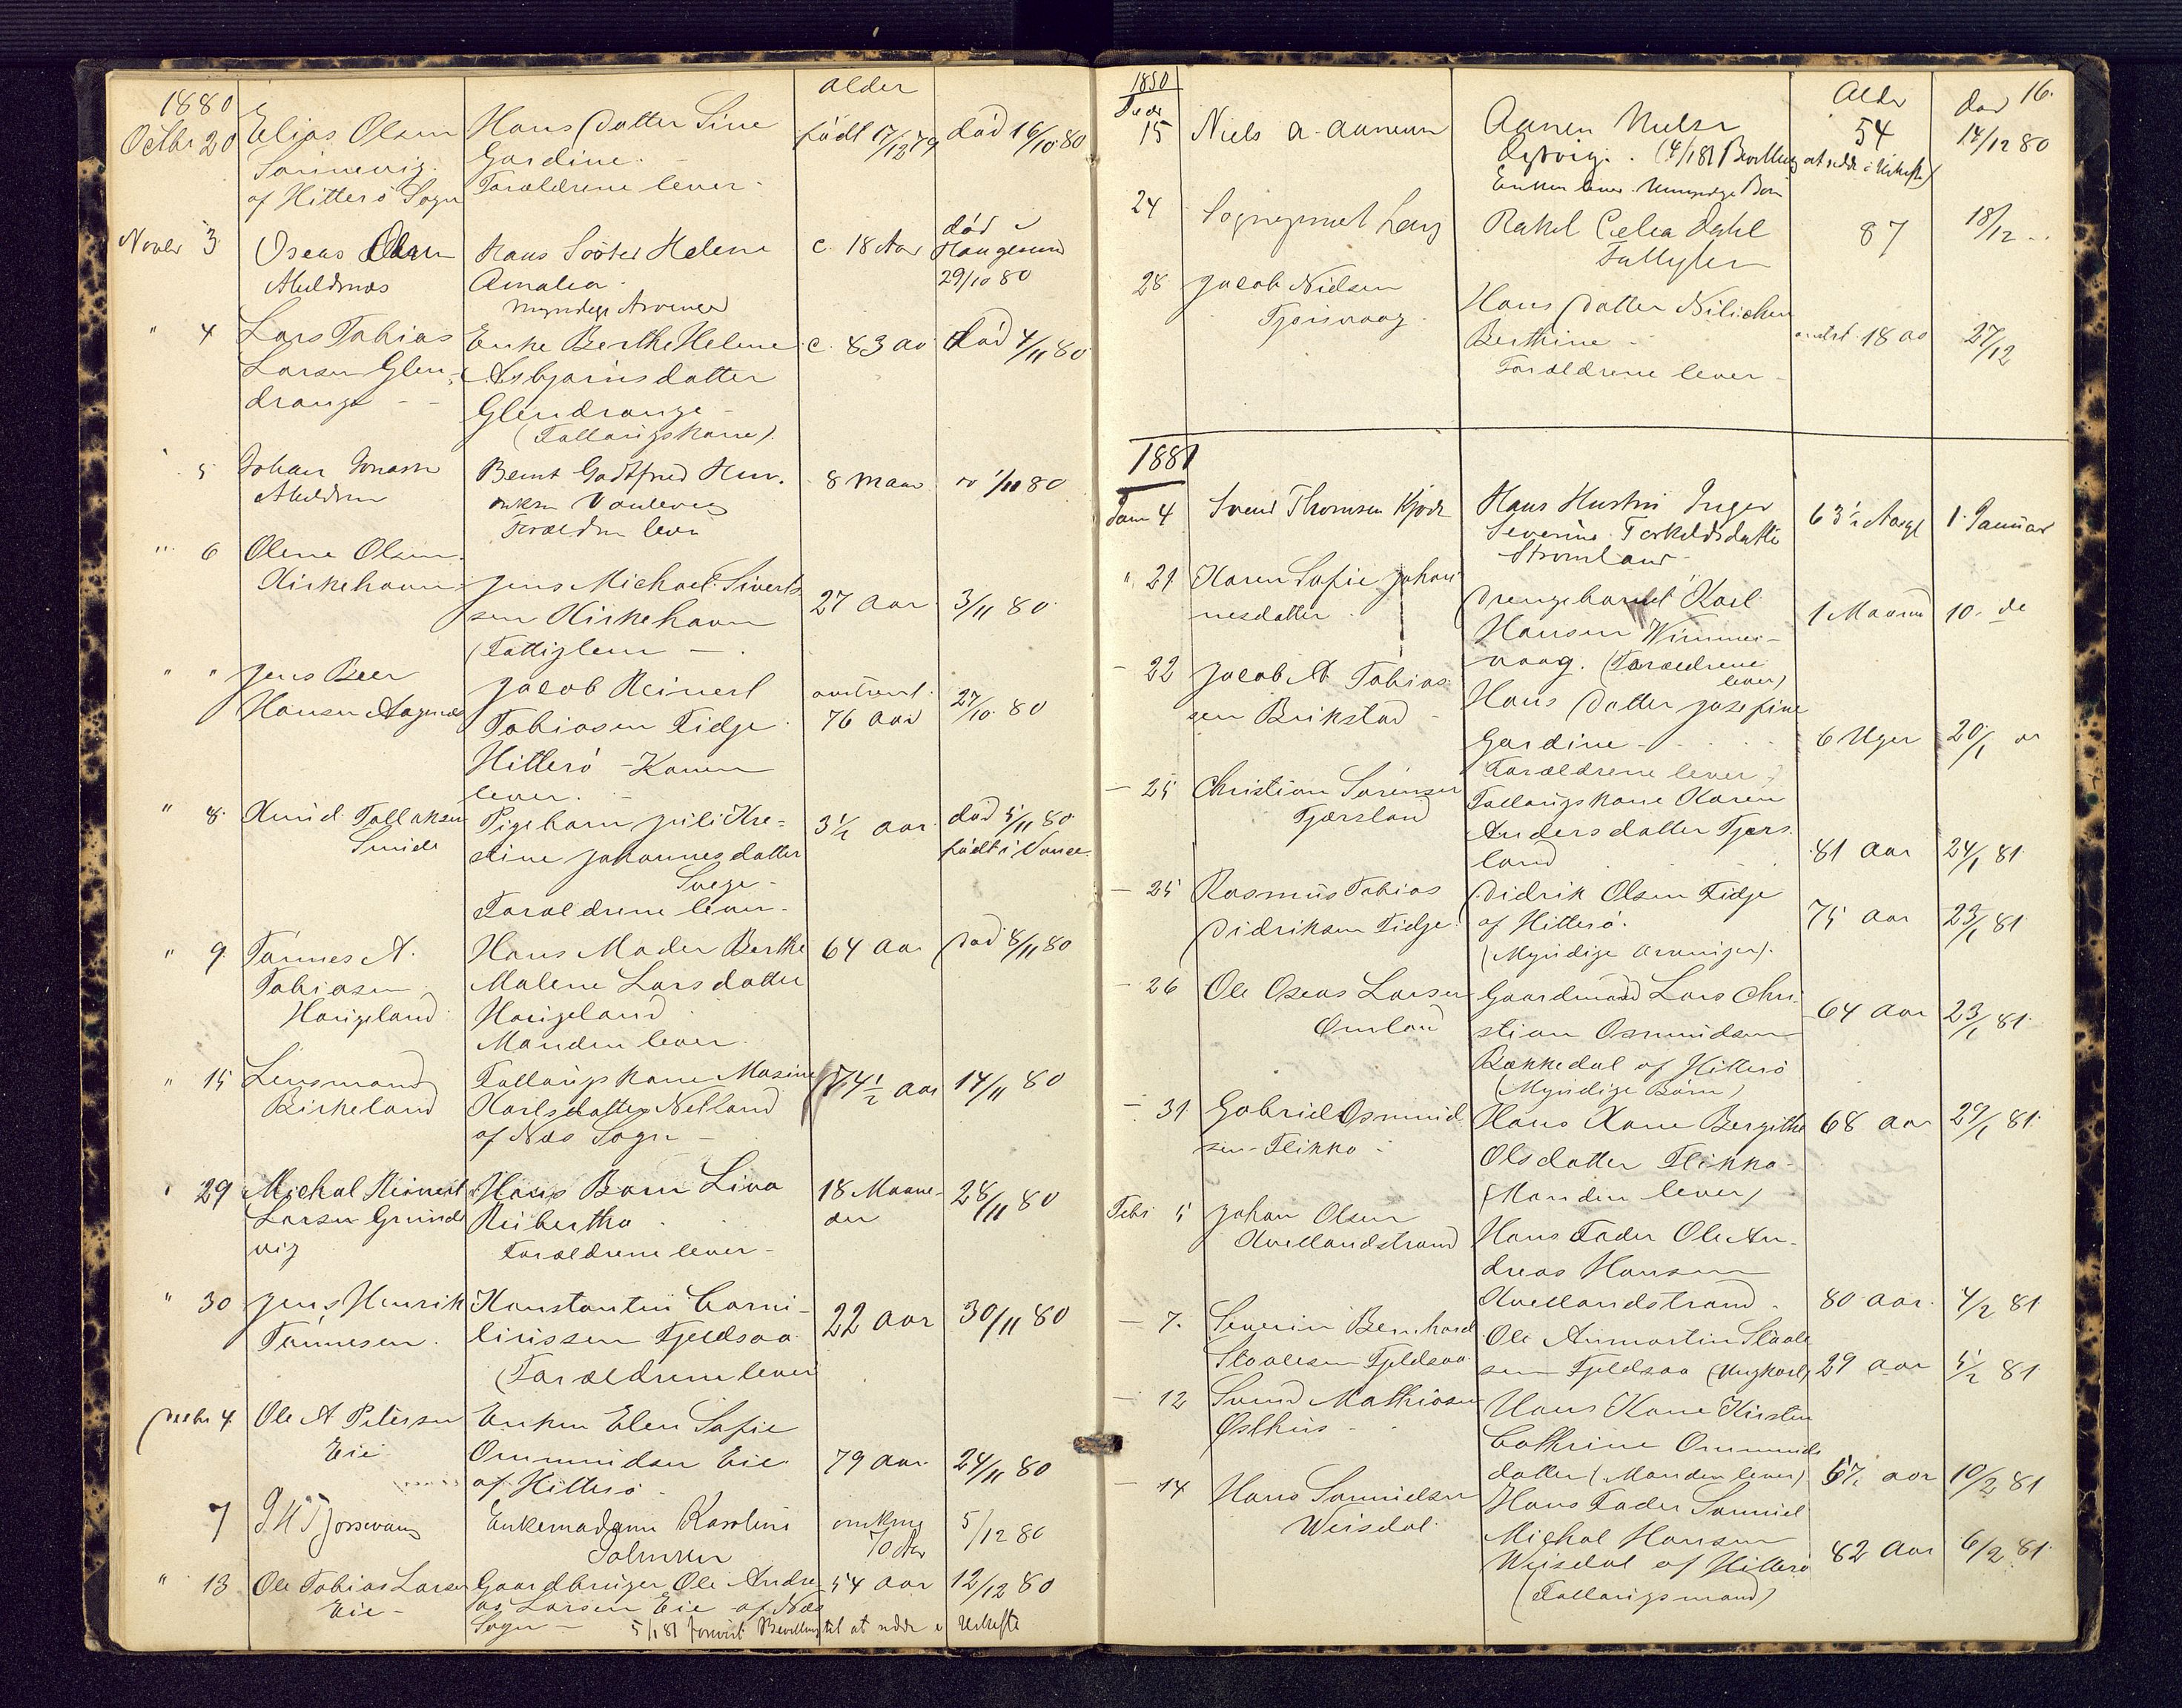 1880
Alder
Octbr 20 Elias Olsen Hans Datter Sine født 17/12 79 død 16/10 80
Sannevig Gardine.
af Hitterö Sogn Forældrene lever.
Novbr 3 Oseas Olsen Hans Søster Helene c. 18 Aar død i
Abelsnæs Amalia. Haugesund
Myndige Arvinger 29/10 80
" 4 Lars Tobias Enke Berthe Helene c. 83 aar død 4/11 80
Larsen Glen- Asbjørnsdatter
drange Glendrange
(Fattigskone).
5 Johan Jonassen Bernt Godtfred Hen- 8 Maan 1/11 80
Abelsnes riksen
Forældrene lever
" 6 Olene Olsen
Kirkehavn Jens Michael Siverts- 27 Aar 3/11 80
sen Kirkehavn
(Fattiglem)
" " Jens Beer Jacob Reinert omtrent 27/10 80
Hansen Aagenæs Tobiasen Fidje 76 Aar
Hitterö - Konen
lever.
" 8 Knud Tollaksen Pigebarn Juli Kre- 3½ Aar død 5/11 80
stine Johannesdatter født i Vanse
Forældrene lever.
" 9 Tønnes A. Hans Moder Berthe 64 Aar død 8/11 80
Tobiasen Malene Larsdatter
Haugeland Haugeland
Manden lever.
" 15 Lensmand Fattigskone Maxine 74½ Aar 14/11 80
Birkeland Karlsdatter Netland
af Næs Sogn
" 29 Michal Reinert Hans Barn Lina 18 Maane- 28/11 80
Larsen Grunde- Ribertha der
vig Forældrene lever
" 30 Jens Henrik Konstantin Corni- 22 Aar 30/11 80
Tønnesen liussen Fjeldsaa
(Forældrene lever
Decbr 4 Ole A Petersen Enken Elen Sofie
Eie Ommundsen Eie 79 Aar 24/11 80
af Hitterö
7 J H Tjorsvaag Enkemadam Karoline omkring 5/12 80
Salvesen 70 Aar
" 13 Ole Tobias Larsen Gaardbruger Ole Andre- 54 Aar 12/12 80
Eie as Larsen Eie af Næs
Sogn 5/1 81 forevist Bevilling til at sidde i Uskifte
1880 Alder død 16.
Decbr
15 Niels A. Aanensen Aanen Nielsen 54 14/12 80
(4/1 81 Bevilling at sidde i Uskifte)
Enken lever. Umyndige Børn
24 Sogneprest Lang Rakel Celia Dahl 87 18/12
Fattiglem
28 Jacob Nielsen Hans Datter
Tjørsvaag Berthine omtrt 18 Aar 27/12
Forældrene lever
1881
Janr 4 Svend Thomsen Hans Hustru Inger 63½ Aar 1. Januar
Severine Torkeldsdatter
Strømland
" 21 Karen Sofie Johan- Drengebarnet Karl 1 Maaned 10. de
nesdatter Hansen Wimmer-
vaag. (Forældrene
lever)
22 Jacob A Tobias- Hans Datter Josefine
sen Brikstad Gardine 6 Uger 20/1
Forældrene lever
25 Christian Sørensen Fattigskone Karen
Tjørsland Andersdatter Tjørs-
land 81 Aar 24/1 81
25 Rasmus Tobias Didrik Olsen Fidje
Didriksen Fidje af Hitterö. 75 Aar 23/1 81
(Myndige Arvinger).
26 Ole Oseas Larsen Gaardmand Lars Chri-
Omland stian Osmundsen 64 Aar 23/1 81
Bækkedal af Hitterö
(Myndige Børn)
31 Gabriel Osmund- Hans Kone Bergithe 68 Aar 29/1 81
sen Flikka Olsdatter Flikka
(Manden lever)
Febr 5 Johan Olsen Hans Fader Ole An-
Kvellandstrand dreas Hansen
Kvellandstrand 80 Aar 4/2 81
7. Severin Bernhard Ole Anmartin Staale-
Staalesen Fjeldsaa sen Fjeldsaa (Ungkarl) 29 Aar 5/2 81
12 Svend Mathiasen Hans Kone Kirsten
Østhus Cathrine Ommunds-
datter (Manden lever) 67½ Aar 10/2 81
14 Hans Samuelsen Hans Fader Samuel
Weisdal Michal Hansen 82 Aar 6/2 81
Weisdal af Hitterö
(Fattigmand)